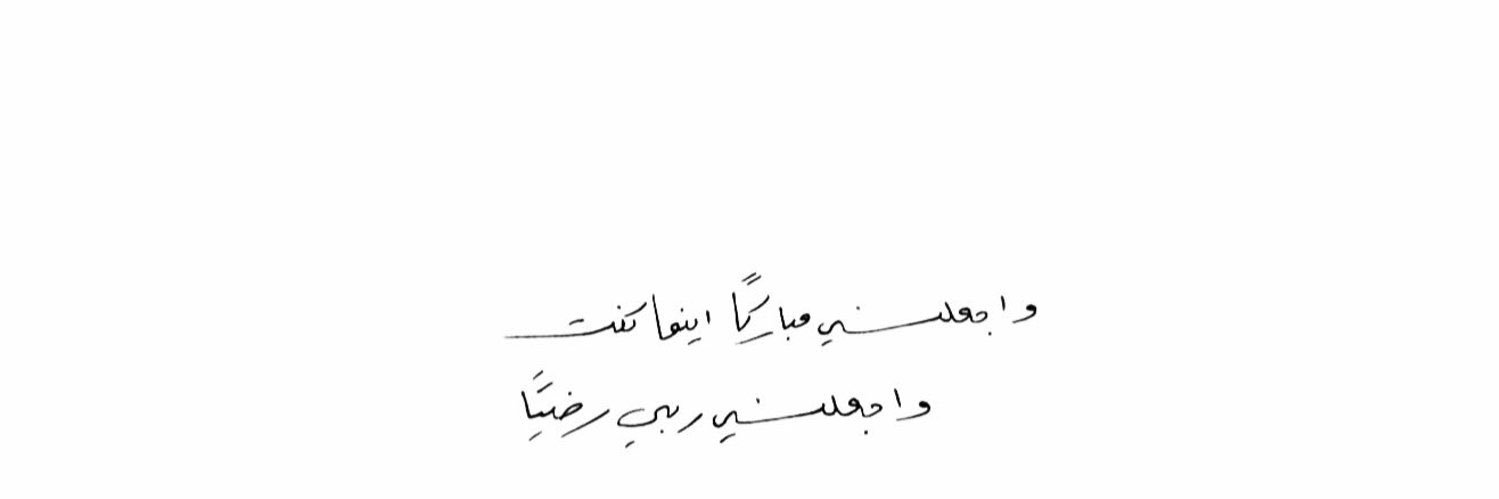 واجعلني مباركًا اينما كنت
واجعلني ربي رضيًا